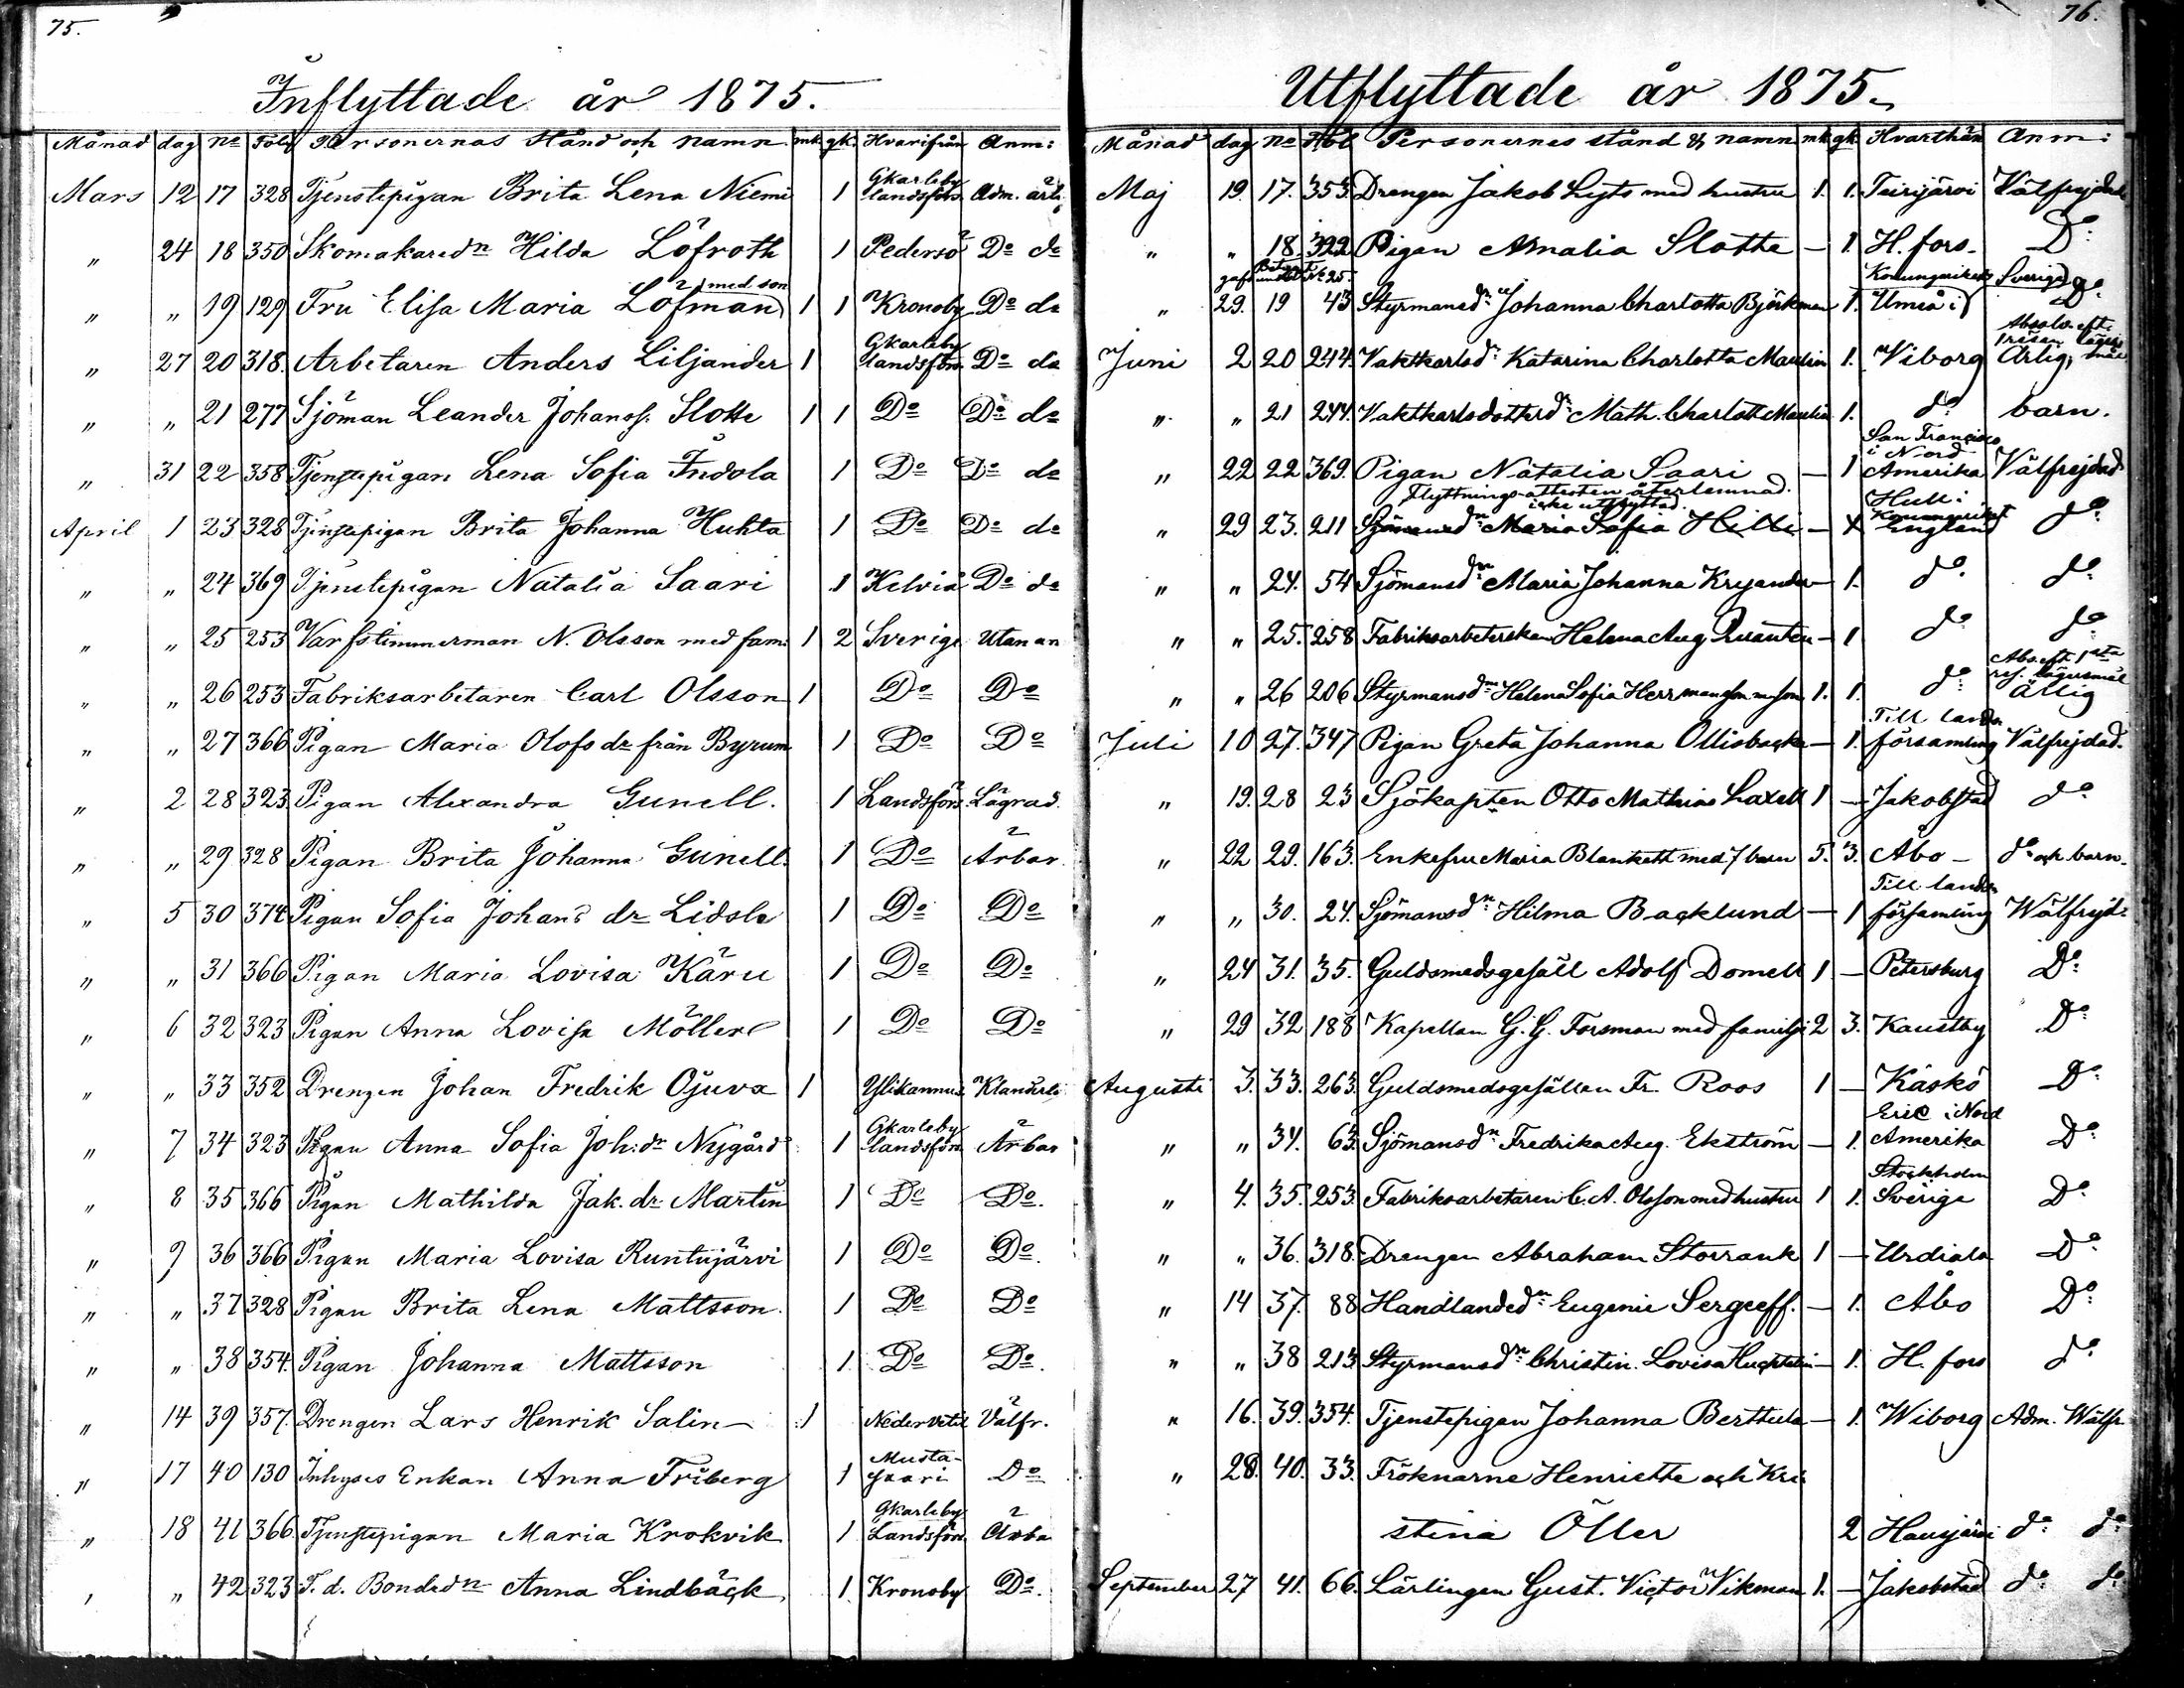 75.
Inflyttade år 1875.
Månad dag No Fol Personernas stånd och namn mk qk. Hvarifrån Anm:
Mars 12 17 328 Tjenstepigan Brita Lena Niemi 1 Gkarleby landsförs. Adm. ärli
„ 24 18 350 Skomakaredn Hilda Löfroth 1 Pedersö Do do
„ „ 19 129 Fru Elisa Maria Löfman med son 1 1 Kronoby Do do
„ 27 20 318. Arbetaren Anders Liljander 1 Gkarleby landsförs. Do do
„ „ 21 277 Sjöman Leander Johanss. Slotte 1 1 Do Do do
„ 31 22 358 Tjenstepigan Lena Sofia Indola 1 Do Do do
April 1 23 328 Tjenstepigan Brita Johanna Huhta 1 Do Do do
„ „ 24 369 Tjenstepigan Natalia Saari 1 Kelviå Do do
„ „ 25 253 Varfstimmerman N. Olsson med fam. 1 2 Sverige Utan an
„ „ 26 253 Fabriksarbetaren Carl Olsson 1 Do Do
„ „ 27 366 Pigan Maria Olofs dr från Byrum 1 Do Do
„ 2 28 323 Pigan Alexandra Gunell. 1 Landsförs. Lägrad.
„ „ 29 328 Pigan Brita Johanna Gunell. 1 Do Ärbar.
„ 5 30 374 Pigan Sofia Johans dr Lidsle 1 Do Do
„ „ 31 366 Pigan Maria Lovisa Käru 1 Do Do
„ 6 32 323 Pigan Anna Lovisa Möller 1 Do Do
„ „ 33 352 Drengen Johan Fredrik Ojuva 1 Ylikannus Klanderli
„ 7 34 323 Pigan Anna Sofia Joh:dr Nygård 1 Gkarleby landsförs. Ärbar
„ 8 35 366 Pigan Mathilda Jak. dr Martin 1 Do Do.
„ 9 36 366 Pigan Maria Lovisa Runtujärvi 1 Do Do.
„ „ 37 328 Pigan Brita Lena Mattsson. 1 Do Do
„ „ 38 354. Pigan Johanna Mattsson 1. Do Do.
„ 14 39 357. Drengen Lars Henrik Salin 1 Nedervetil Välfr.
„ 17 40 130 Inhyses Enkan Anna Friberg 1 Mustasaari Do
„ 18 41 366 Tjenstepigan Maria Krokvik 1 Gkarleby Landsförs. Ärba
„ „ 42 323 F. d. Bondedn Anna Lindbäck 1. Kronoby Do.
76.
Utflyttade år 1875.
Månad dag No Fol Personernas stånd & namn mk qk Hvarthän Anm:
Maj 19. 17. 353. Drengen Jakob Lyts med hustru 1. 1. Teirijärvi Välfrejdad
„ „ 18. 322 Pigan Amalia Slotte — 1. H.fors. Do
„ 29. 19 43 Styrmansdn Johanna Charlotta Björkman 1. Umeå i Konungariket Sverige Do.
Juni 2 20 244. Vaktkarlsdn Katarina Charlotta Maulin 1. Viborg Absolv. eft. 1 resan lägersmål Ärlig,
„ „ 21 244. Vaktkarlsdotterdn Math. Charlott Maulin 1. do barn.
„ 22 22 369. Pigan Natalia Saari — 1 San Francisco i Nord Amerika Välfrejdad
Flyttnings-attesten återlemnad. icke utflyttad.
„ 29 23. 211 Sjömansdn Maria Sofia Hilli — 1 Hull i Konungariket England do
„ „ 24. 54 Sjömansdn Maria Johanna Kryander — 1. do. do
„ „ 25. 258 Fabriksarbeterskan Helena Aug Quanten — 1 do do
„ „ 26 206 Styrmansdn Helena Sofia Herrmanson m. son 1. 1. do Abs. eft. 1sta res. lägersmål Ärlig
Juli 10 27. 347 Pigan Greta Johanna Ollisbacka — 1. Till lands församling Välfrejdad.
„ 19. 28 23 Sjökapten Otto Mathias Laxell 1 — Jakobstad do
„ 22 29. 163. Enkefru Maria Blankett med 7 barn 5. 3. Åbo — do och barn.
„ „ 30. 24. Sjömansdn Hilma Backlund — 1 Till lands församling Wälfrejd.
„ 24 31. 35. Guldsmedsgesäll Adolf Domell 1 — Petersburg Do
„ 29 32 188 Kapellan G. G. Forsman med familje 2 3. Kaustby Do
Augusti 3. 33. 263. Guldsmedsgesällen Fr. Roos 1 — Kaskö Do
„ „ 34. 63. Sjömansdn Fredrika Aug. Ekström — 1. Erie i Nord Amerika Do
„ 4. 35. 253. Fabriksarbetaren C. A. Olsson med hustru 1 1. Stockholm Sverige Do
„ „ 36. 318. Drengen Abraham Storrank 1 — Urdiala Do
„ 14 37. 88 Handlandedn Eugenie Sergeeff. — 1. Åbo Do
„ „ 38 213 Styrmansdn Christin. Lovisa — 1. H.fors do
„ 16. 39. 354. Tjenstepigan Johanna Bertteela — 1. Wiborg Adm. Wälfr.
„ 28. 40. 33. Fröknarne Henriette och Kri
stina Öller 2 Hausjärvi do do
September 27 41. 66. Lärlingen Gust. Victor Vikman 1. — Jakobstad do do